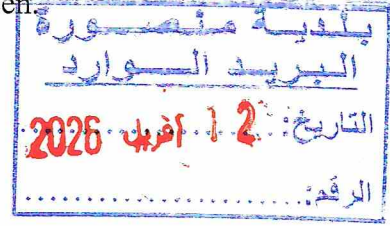 en
بلدية منصورة
البريد الوارد
التاريخ: 12 أفريل 2026
الرقم: